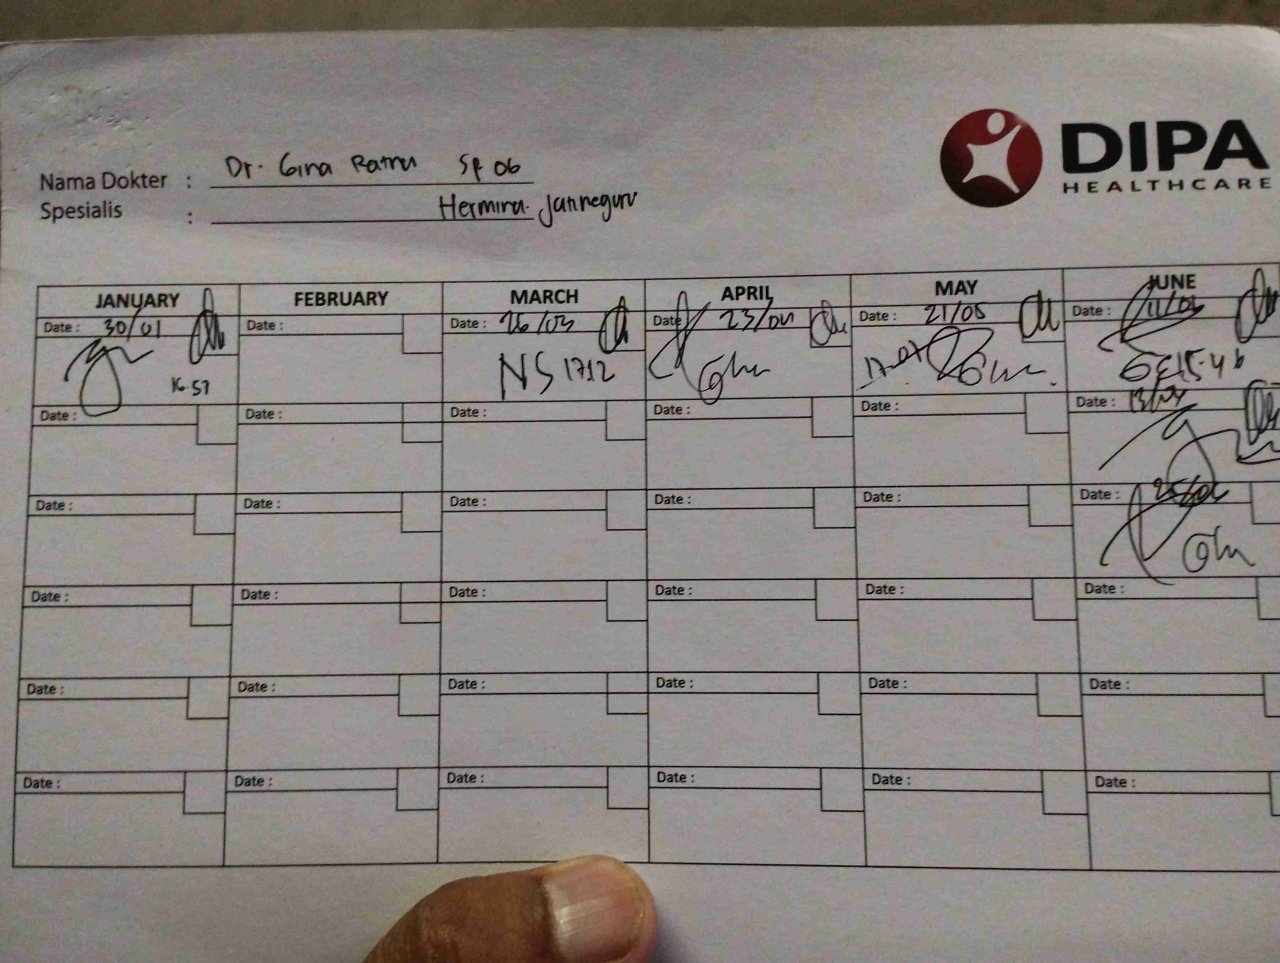 DIPA
HEALTHCARE
Nama Dokter : Dr. Gina Ratnu Sp OG
Spesialis : Hermina Jatinegara
JANUARY FEBRUARY MARCH APRIL MAY JUNE
Date : 30/01 Date : Date : 26/03 Date 23/04 Date : 21/05 Date : 11/06
16.57 NS 1712 17.07 15.46
Date : Date : Date : Date : Date : Date : 13/06
Date : Date : Date : Date : Date : Date : 25/06
Date : Date : Date : Date : Date : Date :
Date : Date : Date : Date : Date : Date :
Date : Date : Date : Date : Date : Date :